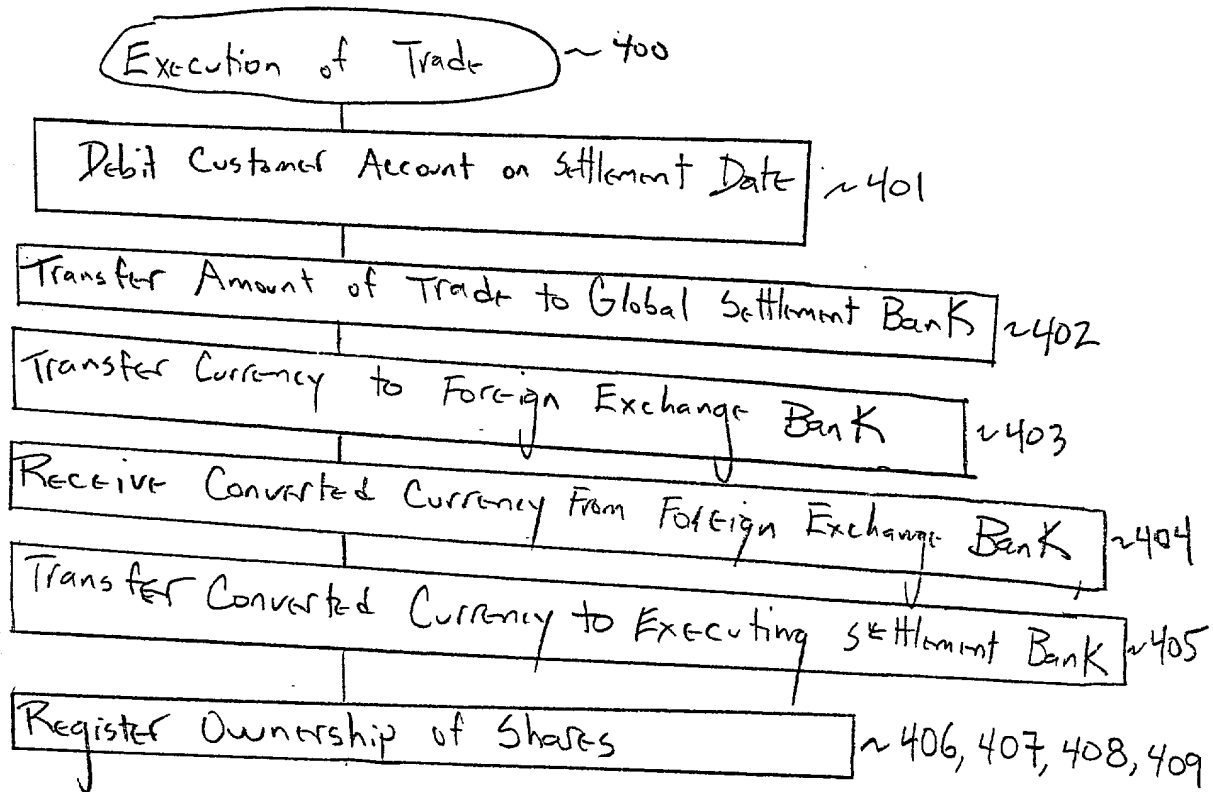 Execution of Trade ~ 400
Debit Customer Account on Settlement Date ~ 401
Transfer Amount of Trade to Global Settlement Bank ~ 402
Transfer Currency to Foreign Exchange Bank ~ 403
Receive Converted Currency From Foreign Exchange Bank ~ 404
Transfer Converted Currency to Executing Settlement Bank ~ 405
Register Ownership of Shares ~ 406, 407, 408, 409